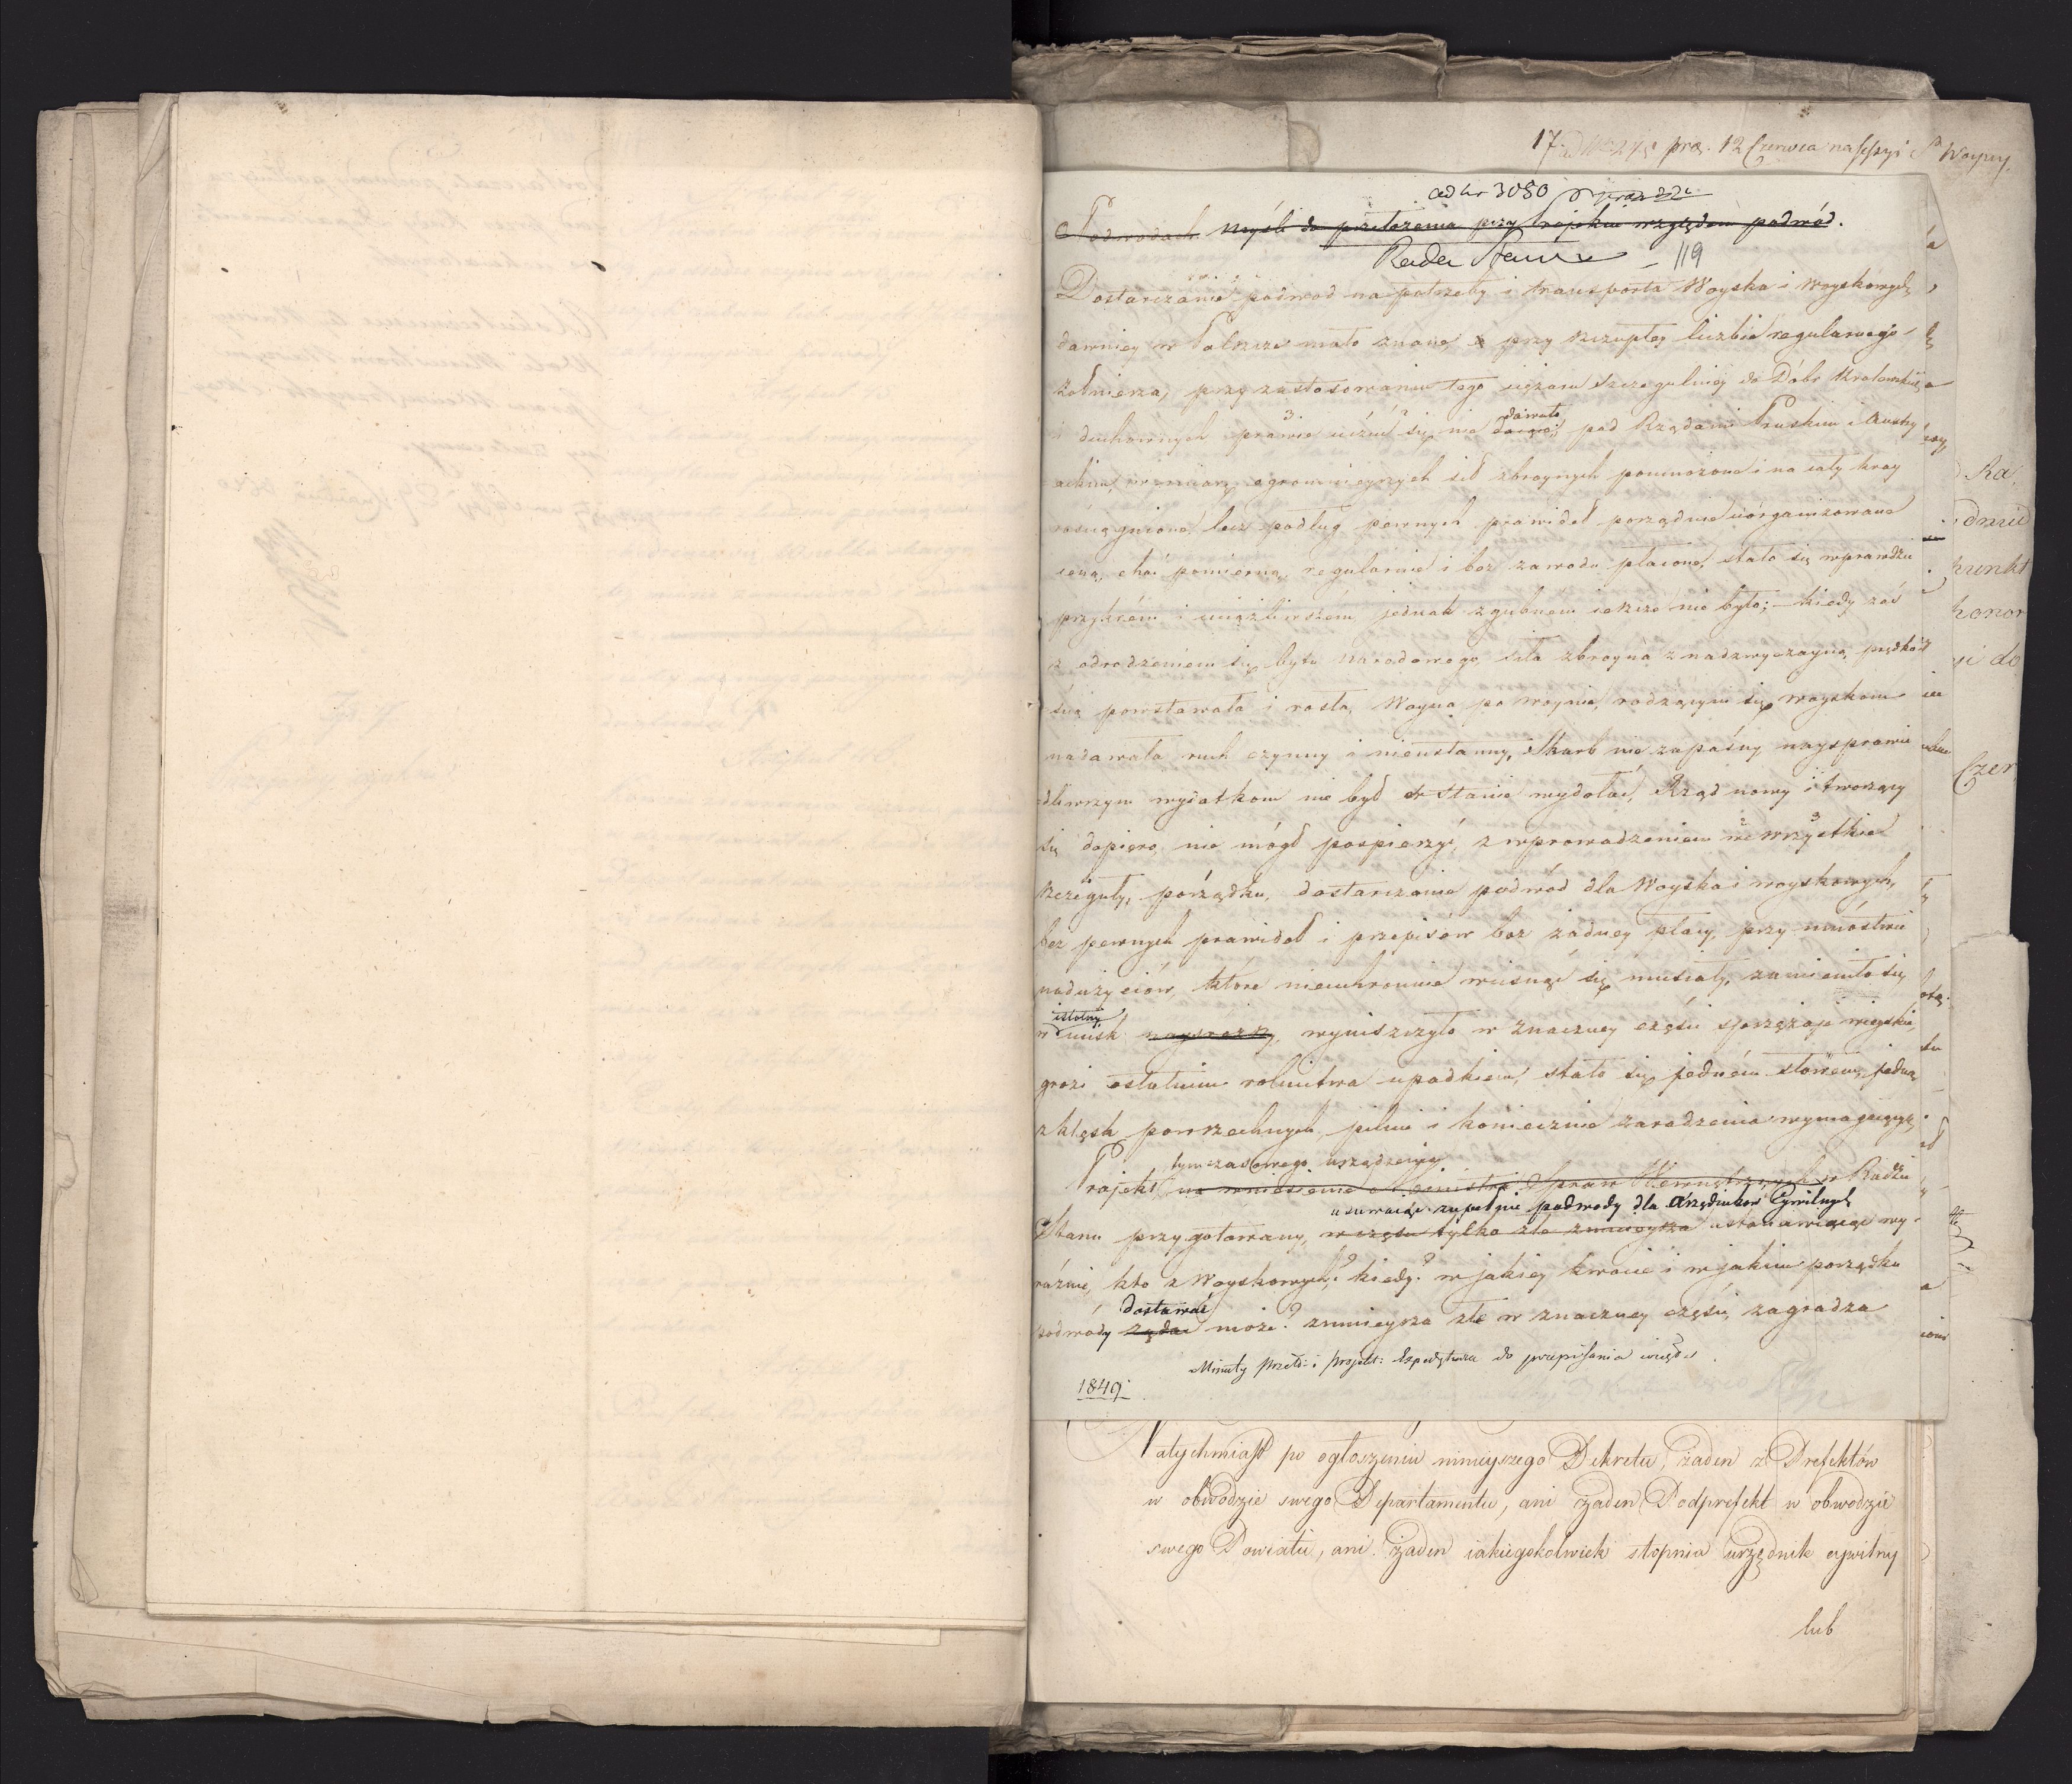 17. pręz. 12 Czerwca na sessyi
ad Nr 3080
Podwodach Myśli do przełożenia przy Projekcie względem podwód.
Rada Stanu – 119
Dostarczanie podwod na potrzeby i transporta Woyska i Woyskowych,
dawniey w Polszcze mało znane, przy szczupłey liczbie regularnego
żołnierza, przy zastosowaniu tego ciężaru szczegulniey do Dóbr Krolewskich
i duchownych prawie uczuć się nie dawało pod Rządami Pruskim i Austry
ackim, ogromnieyszych sił zbroynych pomnożone i na cały kray
rosciągnione, lecz podług pewnych prawideł porządnie uorganizowane
ceną, choć pomierną, regularnie i bez zawodu płacone, stało się wprawdzie
przykrém i uciążliwszém, jednak zgubném ieszcze nie było; kiedy zaś
z odrodzeniem się bytu Narodowego, siła zbroyna z nadzwyczayną prędko
ścią powstawała i rosła, Woyna po Woynie, rodzącym się woyskom
nadawała ruch czynny i nieustanny, Skarb nie zapaśny naysprawie
dliwszym wydatkom nie był w stanie wydołać, Rząd nowy i tworzący
się dopiero, nie mógł pospieszyć, z wprowadzeniem we wszystkie
szczeguły, porządku, dostarczanie podwód dla Woyska i woyskowych,
bez pewnych prawideł i przepisów bez żadney płacy, przy mnóstwie
nadużyciów, które niechronnie wcisnąć się musiały, zamieniło się
istotny
w ucisk, wyniszczyło w znaczney części sprzężaje wieyskie,
grozi ostatnim rolnictwa upadkiem, stało się jedném słowem, jedną
z klęsk powszechnych pilnie i koniecznie zaradzenia wymagaiących,
tymczasowego urządzenia
Projekt na wniesienie Ministra Spraw Wewnętrznych w Radzie
usuwaiąc zupełnie podwody dla Urzędników Cywilnych
Stanu przygotowany, w części tylko złe zmnieysza ustanawiaiąc wy-
raźnie, kto z Woyskowych? kiedy? w jakiey kwocie i w jakim porządku
dostawać
podwody żądać może? zmnieysza złe w znaczney części, zagradza
Minuty przeło: i projekt: Expedytura do przepisania
1849.
Natychmiast po ogłoszeniu ninieyszego Dekretu, żaden z Prefektów
w obwodzie swego Departamentu, ani żaden Podprefekt w obwodzie
swego Powiatu, ani żaden iakiegokolwiek stopnia urzędnik cywilny
lub